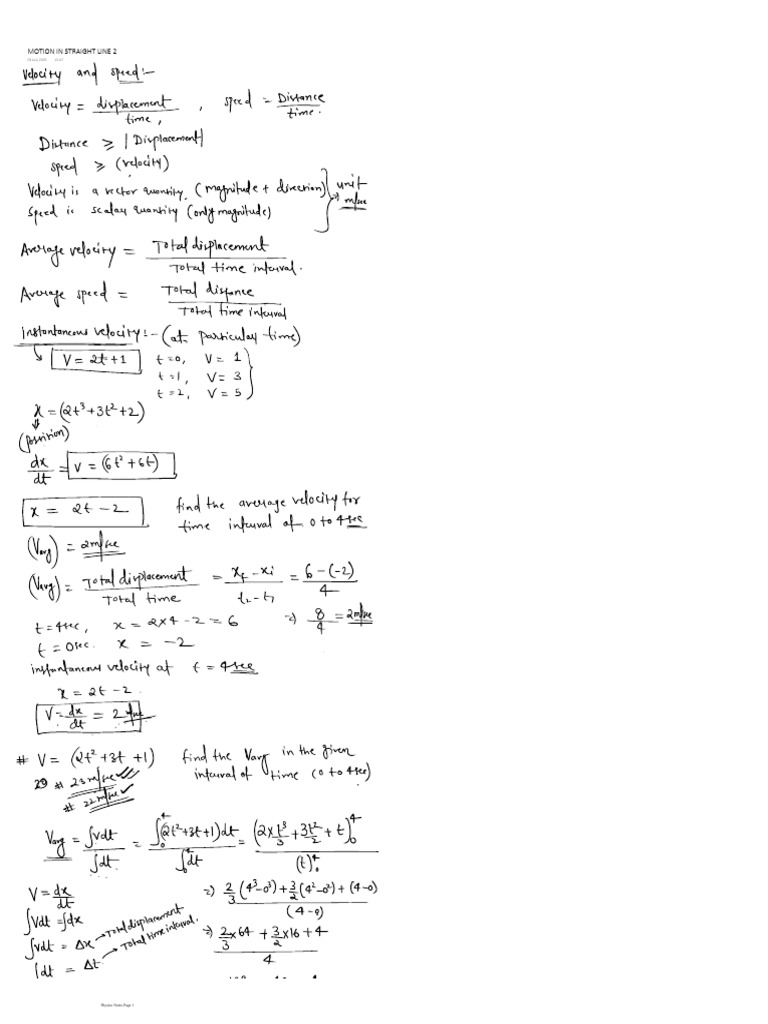 MOTION IN STRAIGHT LINE 2
Velocity and speed:-
Velocity = displacement/time, , speed = Distance/time.
Distance ≥ |Displacement|
speed ≥ (velocity)
Velocity is a vector quantity. (magnitude + direction) } ⇒ unit
Speed is scalar quantity (only magnitude) m/sec
Average velocity = Total displacement / Total time interval.
Average speed = Total distance / Total time interval
instantaneous velocity:- (at particular time)
V = 2t+1 t=0, V= 1
t=1, V= 3
t=2, V= 5
x = (2t³+3t²+2)
(position)
dx/dt = V = (6t²+6t)
x = 2t-2 find the average velocity for
time interval of 0 to 4sec
(Vavg) = 2m/sec
(Vavg) = Total displacement / Total time = xf - xi / t2 - t1 = 6-(-2) / 4
t=4sec, x = 2×4-2 = 6 ⇒ 8/4 = 2m/sec
t = 0sec. x = -2
instantaneous velocity at t = 4sec
x = 2t-2.
V = dx/dt = 2 m/sec
# V = (2t²+3t+1) find the Vavg in the given
interval of time (0 to 4sec)
29 # 23m/sec
# 22m/sec
Vavg = ∫vdt / ∫dt = ∫₀⁴(2t²+3t+1)dt / ∫₀⁴dt = (2×t³/3 + 3t²/2 + t)₀⁴ / (t)₀⁴
V = dx/dt ⇒ 2/3(4³-0³)+3/2(4²-0²)+(4-0) / (4-0)
∫Vdt = ∫dx
∫vdt = Δx → Total displacement ⇒ 2/3×64 + 3/2×16+4 / 4
∫dt = Δt → Total time interval.
Physics Notes Page 1